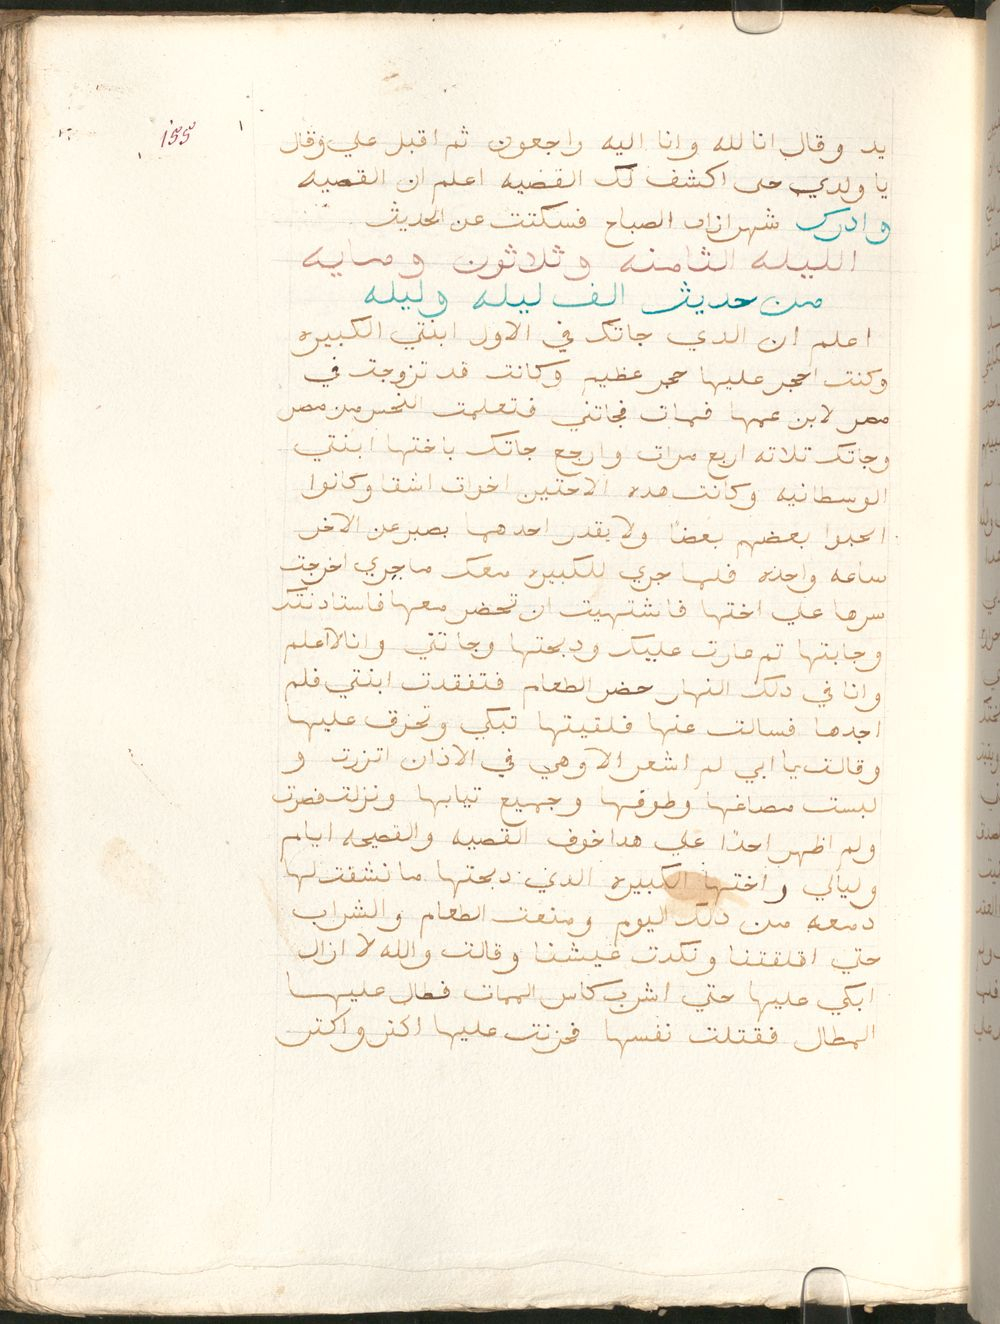 155
يد وقال انا لله وانا اليه راجعون ثم اقبل علي وقال
يا ولدي حتى اكشف لك القضيه اعلم ان القصيه
وادرك شهرازاد الصباح فسكتت عن الحديث
الليله الثامنه وثلاثون ومايه
من حديث الف ليله وليله
اعلم ان الدي جاتك في الاول ابنتي الكبيره
وكنت احجر عليها حجر عظيم وكانت قد تزوجت في
مصر لابن عمها فمات فجاتني فتعلمت النحس من مصر
وجاتك تلاته اربع مرات وارجع جاتك باختها ابنتي
الوسطانيه وكانت هده الاختين اخوات اشقا وكانوا
اتحبوا بعضهم بعضا ولا يقدر احدهما بصبر عن الاخر
ساعه واحده فلما جري للكبيره معك ما جري اخرجت
سرها علي اختها فاشتهيت ان تحضر معها فاستادنتك
وجابتها تم غارت عليك ودبحتها وجاتني وانا لا اعلم
وانا في دلك النهار حضر الطعام فتفقدت ابنتي فلم
اجدها فسالت عنها فلقيتها تبكي وتحرق عليها
وقالت يا ابي لم اشعر الا وهي في الادان اتزرت و
لبست مصاغها وطوقها وجميع تيابها ونزلت فصرت
ولم اظهر احدًا علي هدا خوف القصيه والفضيحه ايام
وليالي واختها الكبيره الدي دبحتها ما نشفت لها
دمعه من دالك اليوم ومنعت الطعام والشراب
حتي اقلقتنا ونكدت عيشنا وقالت والله لا ازال
ابكي عليها حتي اشرب كاس الممات فطال عليها
المطال فقتلت نفسها فحزنت عليها اكتر واكتر